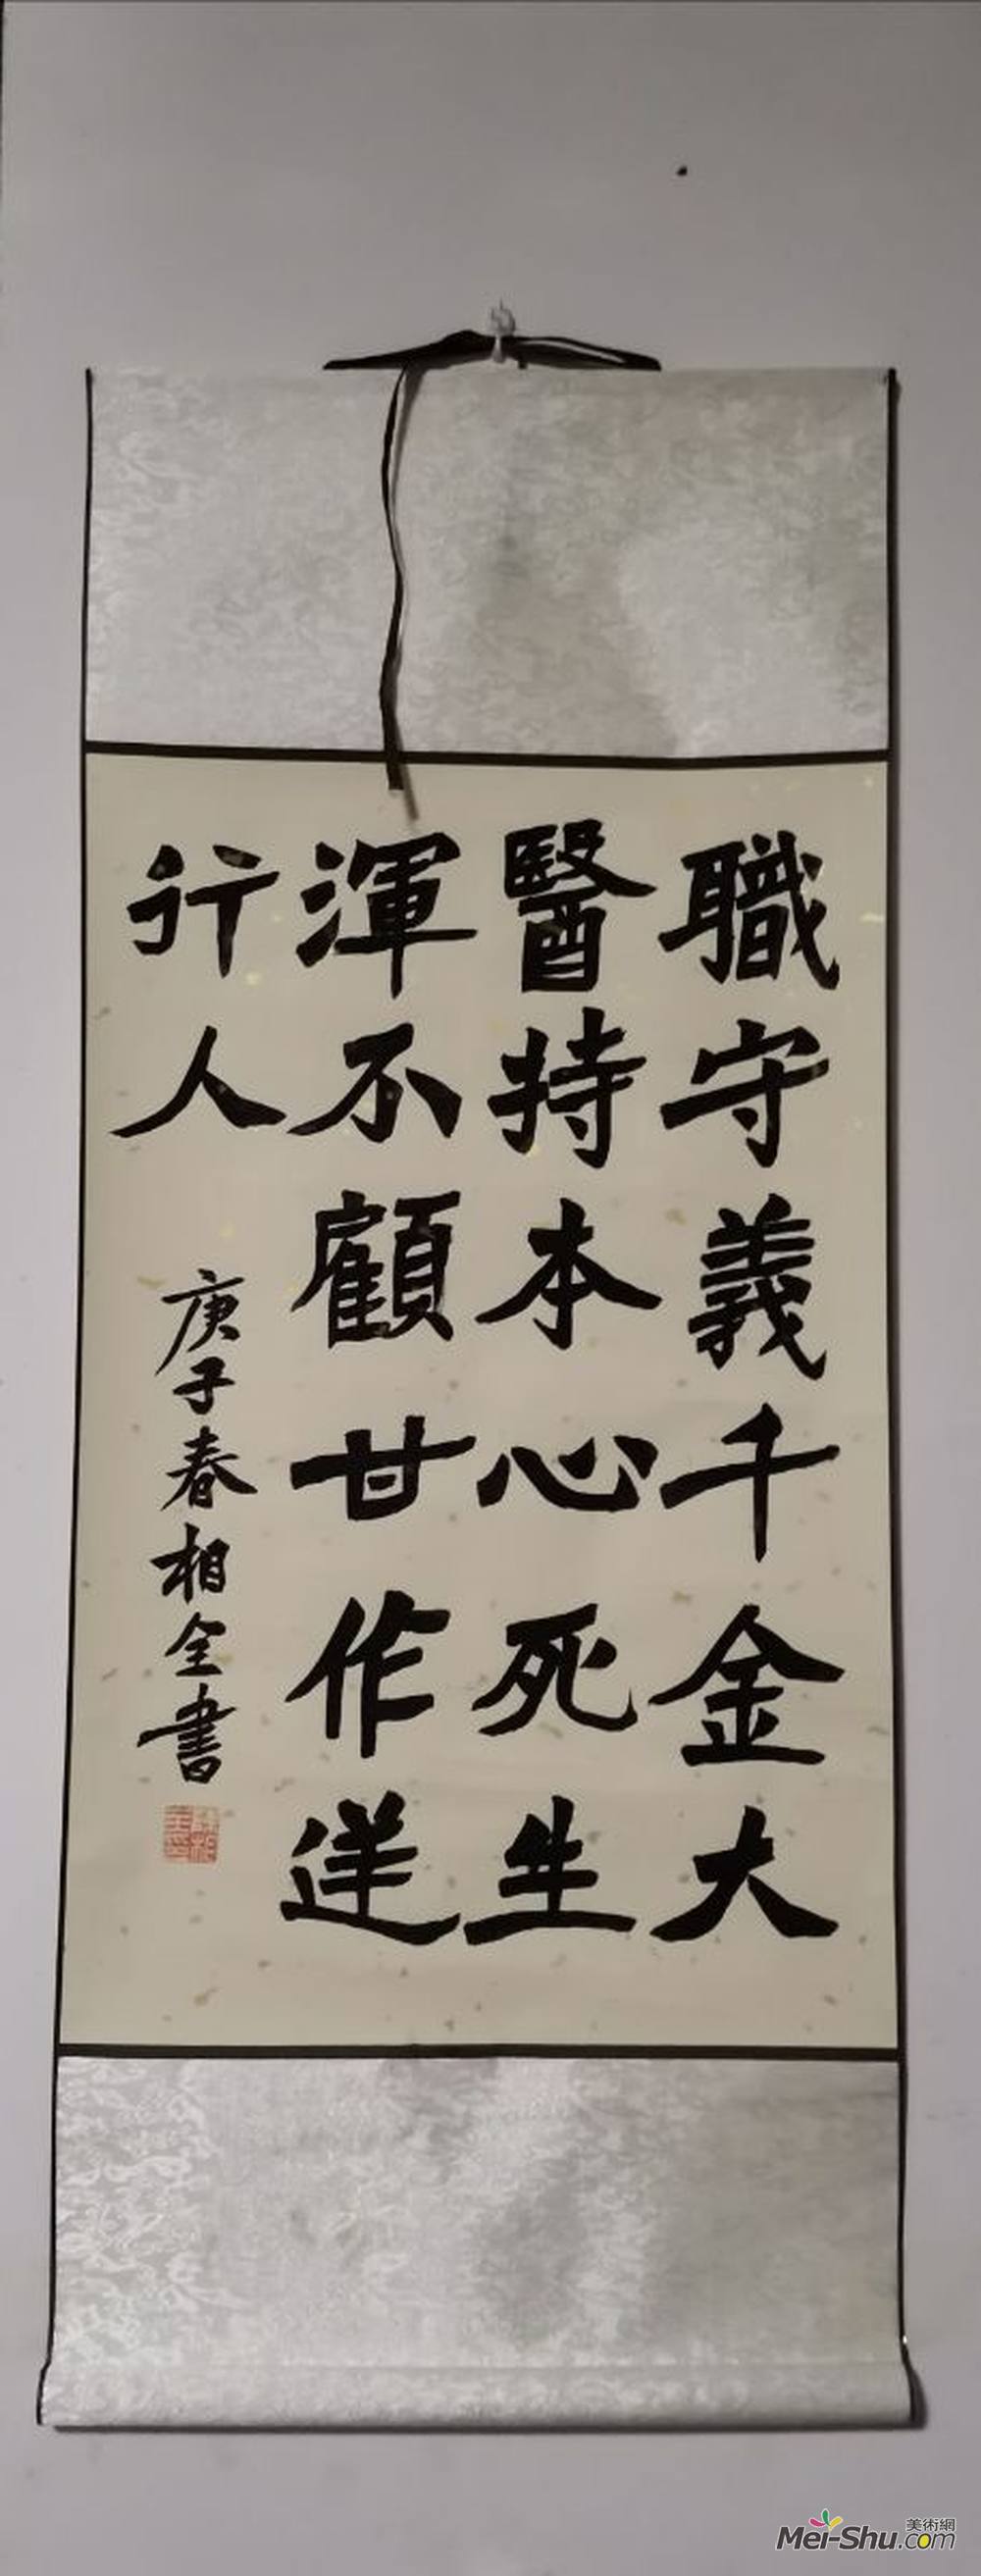 職守義千金大
醫持本心死生
渾不顧甘作逆
行人
庚子春相全書
美術網
Mei-Shu.com